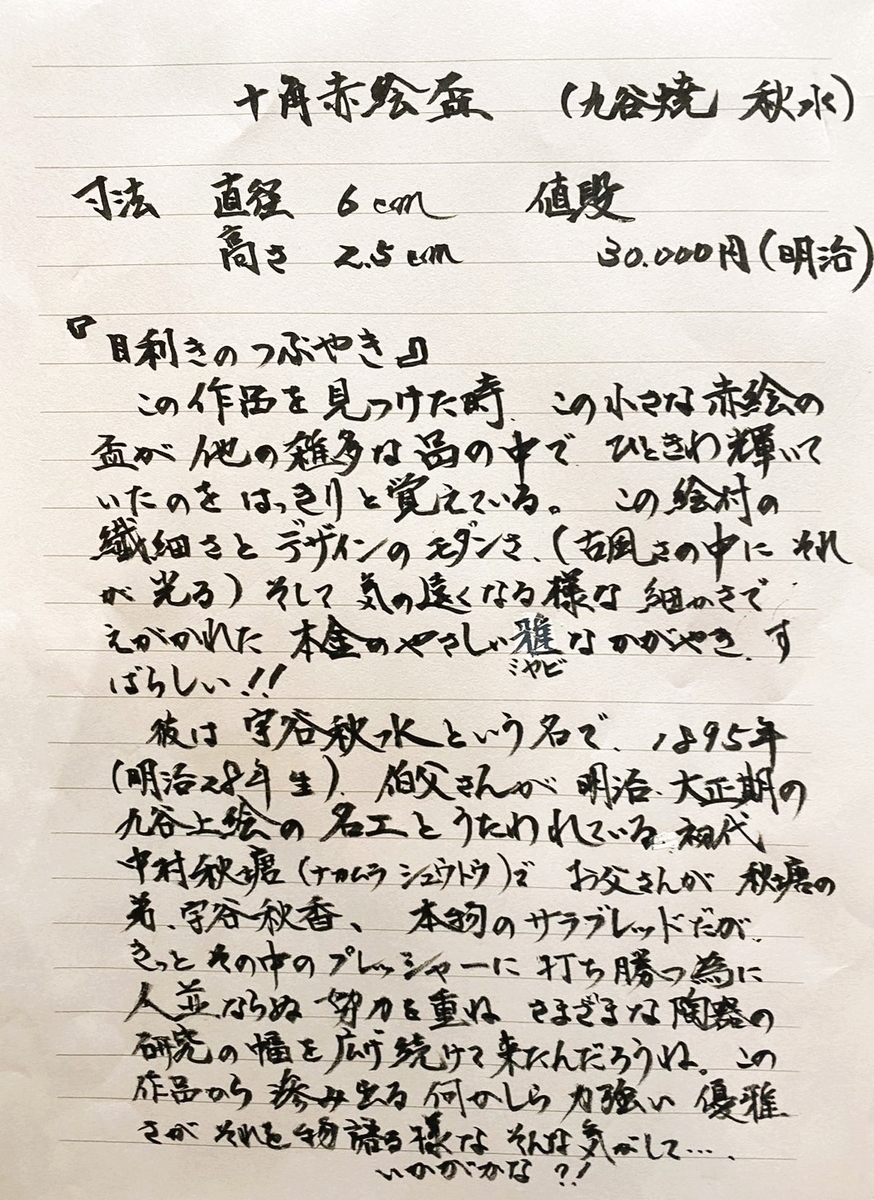 十角赤絵盃 (九谷焼 秋水)
寸法 直径 6cm 値段
高さ 2.5cm 30.000円(明治)
『目利きのつぶやき』
この作品を見つけた時、この小さな赤絵の
盃が他の雑多な品の中で ひときわ輝いて
いたのをはっきりと覚えている。 この絵付の
繊細さとデザインのモダンさ、(古風さの中にそれ
が光る)そして気の遠くなる様な細かさで
えがかれた本金のやさしい雅なかがやき、す
ミヤビ
ばらしい!!
彼は宇谷秋水という名で、1895年
(明治28年生)、伯父さんが明治、大正期の
九谷上絵の名工とうたわれている初代
中村秋塘(ナカムラシュウトウ)で お父さんが 秋塘の
弟、宇谷秋香、 本物のサラブレッドだが、
きっとその中のプレッシャーに打ち勝つ為に
人並ならぬ努力を重ね さまざまな陶器の
研究の幅を広げ続けて来たんだろうね。この
作品から滲み出る何かしら力強い優雅
さがそれを物語る様なそんな気がして…、
いかがかな?!